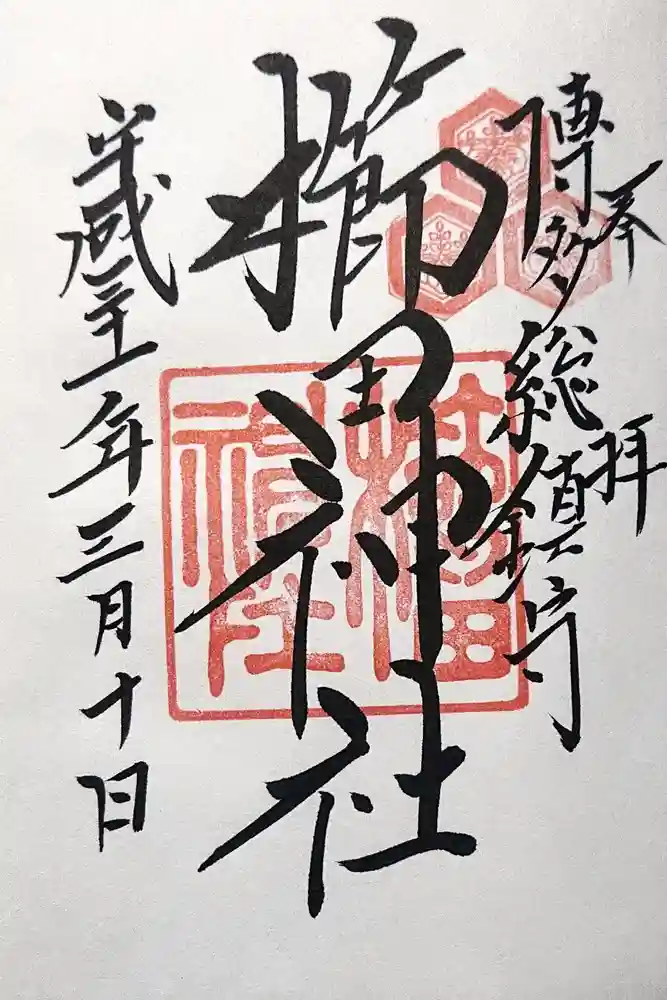 奉拝
博多総鎮守
櫛田神社
櫛田
神社
平成三十一年三月十日